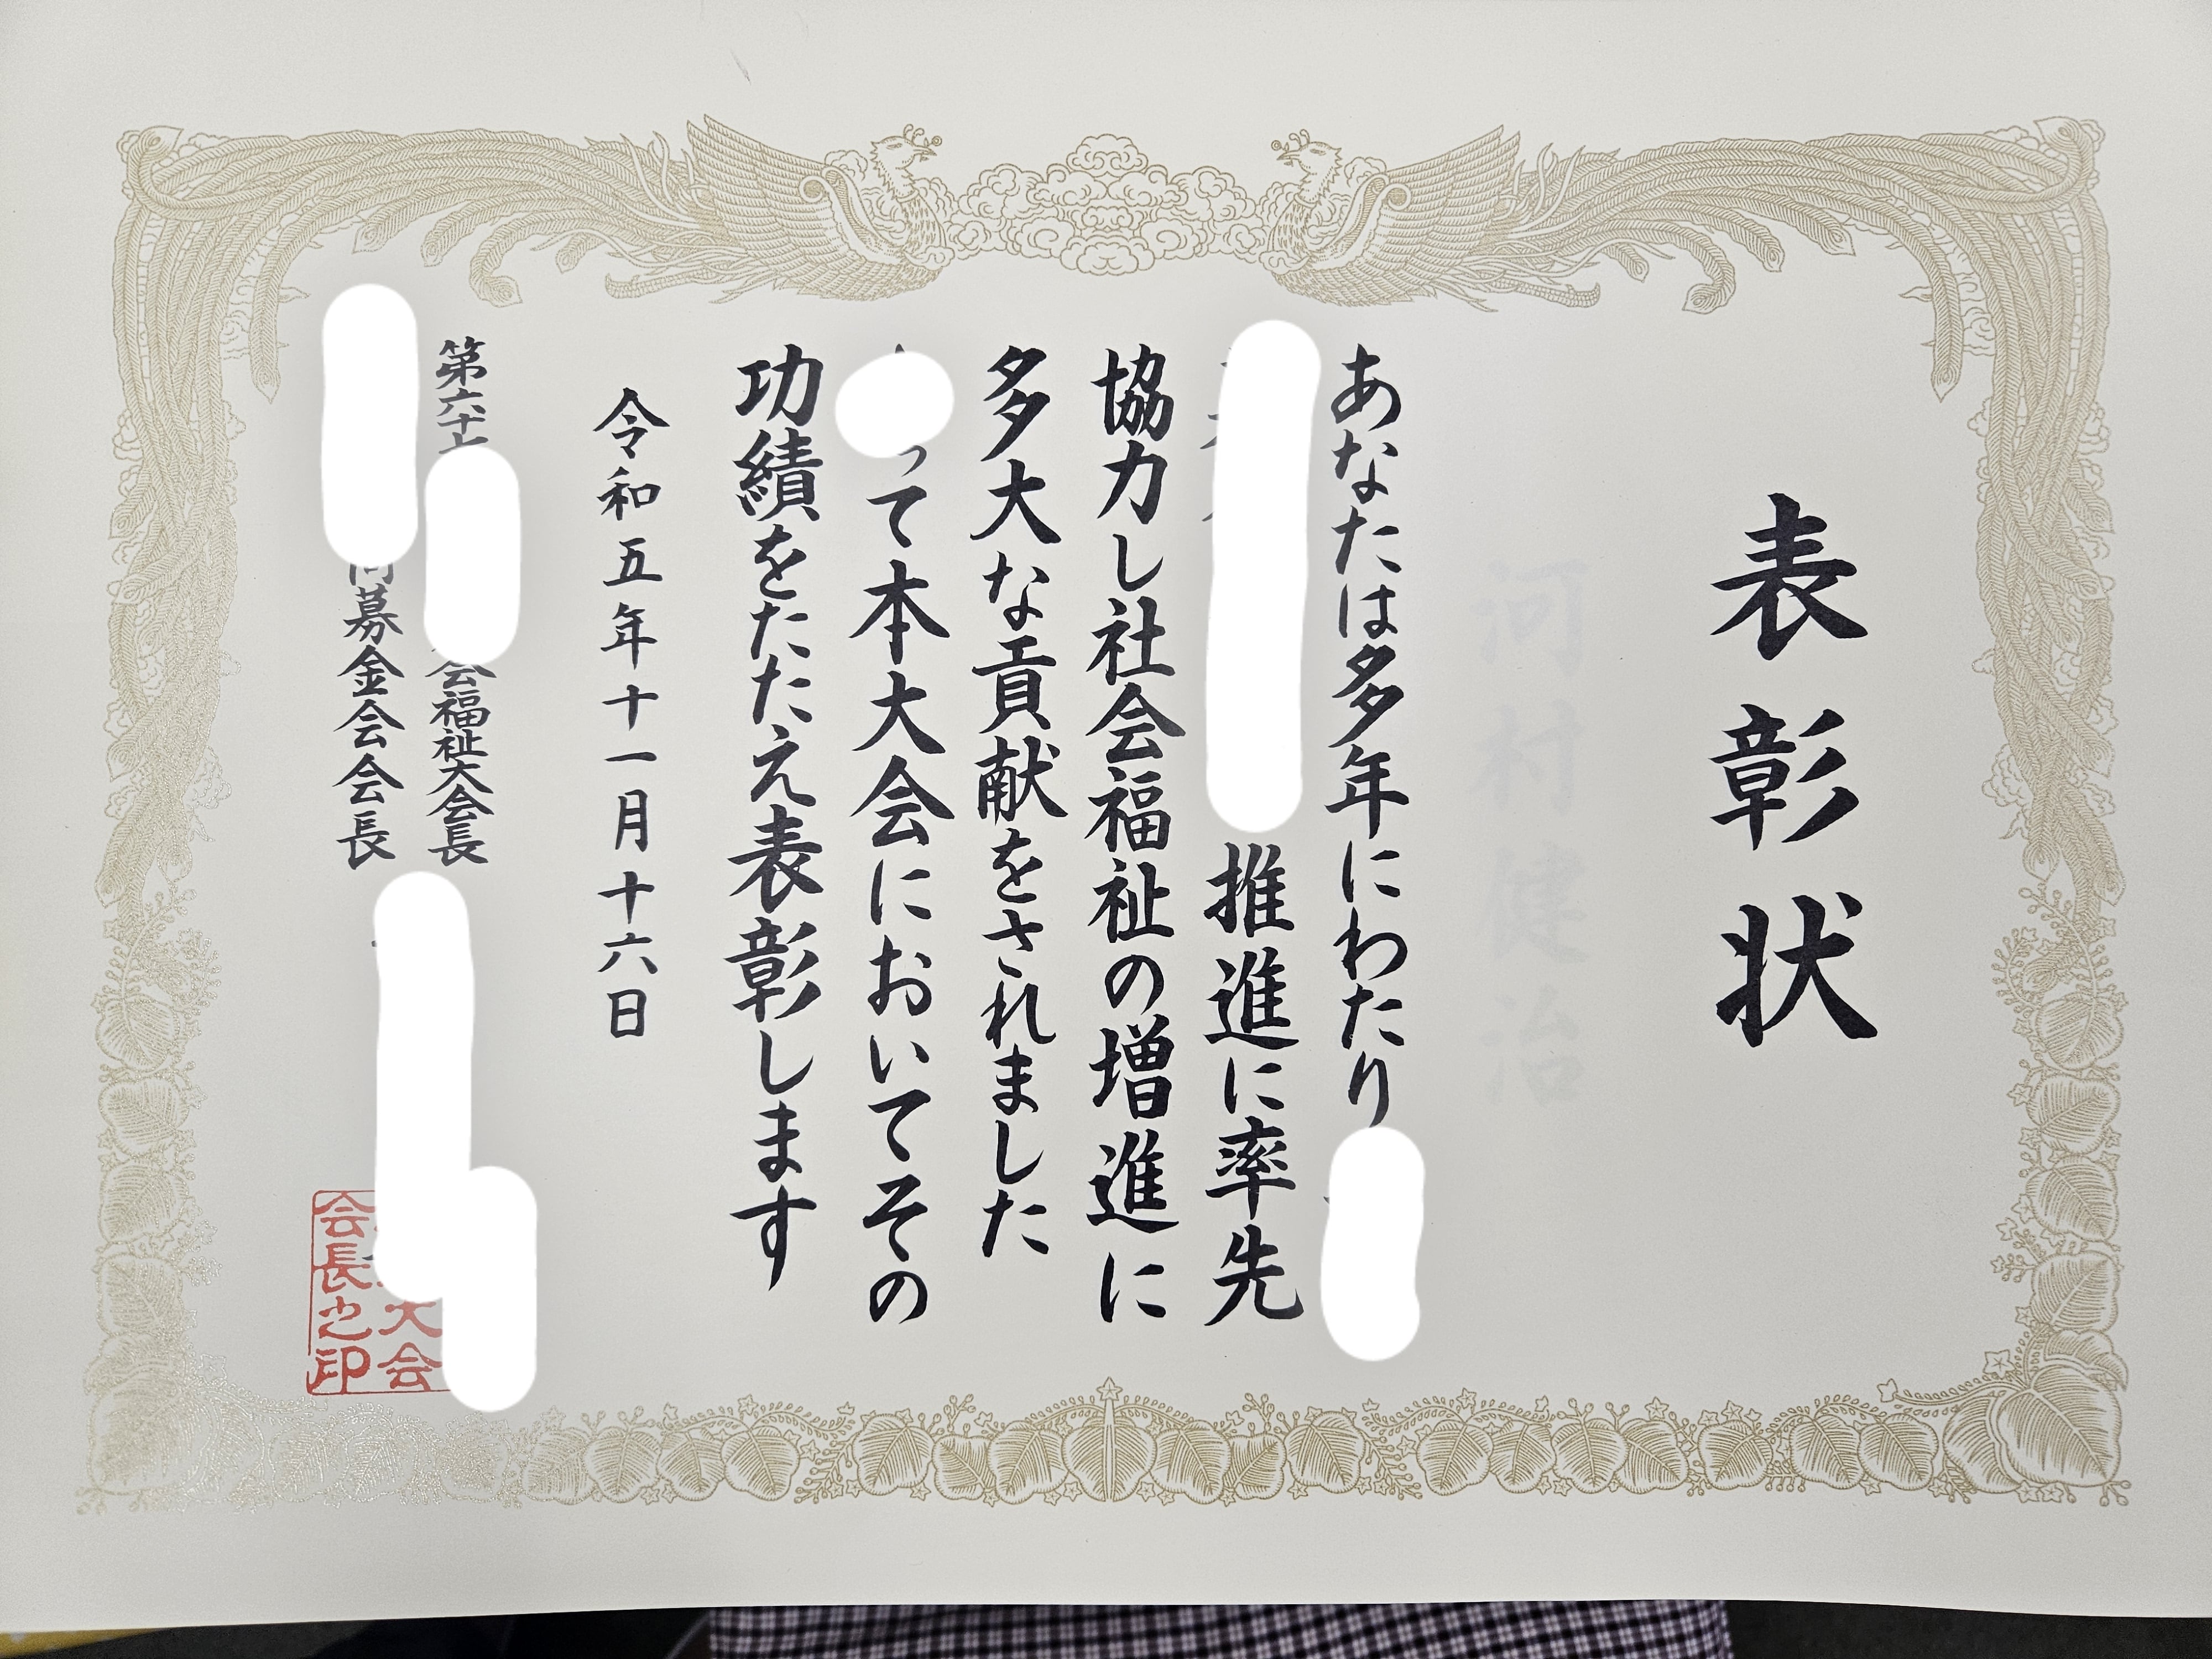 表彰状
河村健治
あなたは多年にわたり
推進に率先
協力し社会福祉の増進に
多大な貢献をされました
って本大会においてその
功績をたたえ表彰します
令和五年十一月十六日
第六十
会福祉大会長
同募金会会長
大会
会長之印